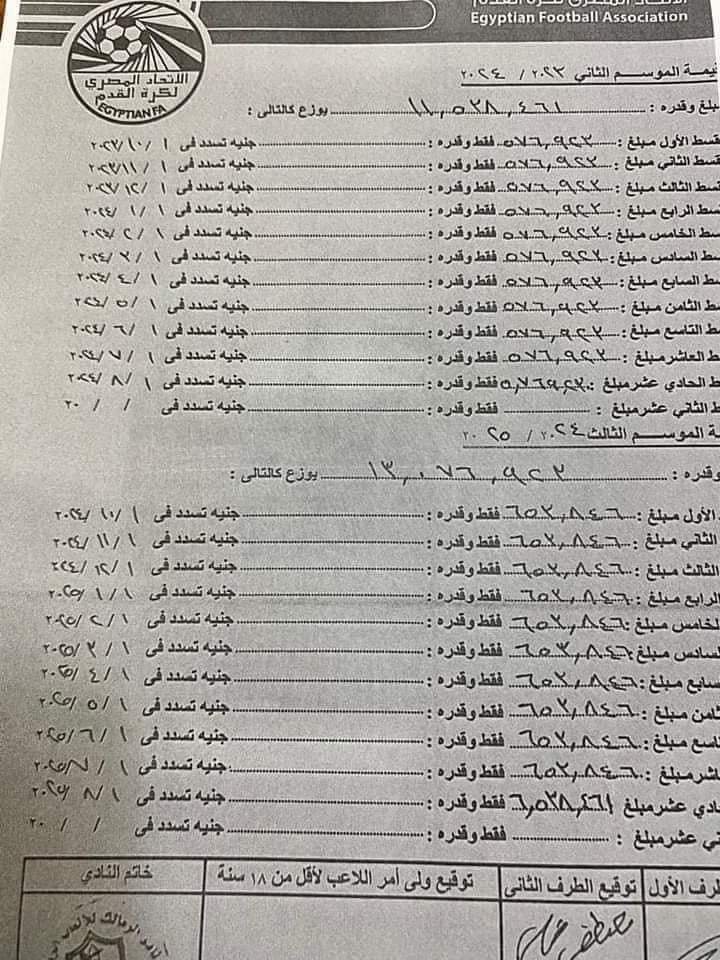 الاتحاد المصرى لكرة القدم
Egyptian Football Association
الاتحاد المصرى
لكرة القدم
EGYPTIAN FA
يمة الموسم الثاني ٢٠٢٣ / ٢٠٢٤
مبلغ وقدره : ١١,٥٣٨,٤٦١ يوزع كالتالى :
قسط الأول مبلغ : ٥٧٦,٩٢٣ فقط وقدره : جنيه تسدد فى ١ / ١٠ / ٢٠٢٣
قسط الثاني مبلغ : ٥٧٦,٩٢٣ فقط وقدره : جنيه تسدد فى ١ / ١١ / ٢٠٢٣
سط الثالث مبلغ : ٥٧٦,٩٢٣ فقط وقدره : جنيه تسدد فى ١ / ١٢ / ٢٠٢٣
سط الرابع مبلغ : ٥٧٦,٩٢٣ فقط وقدره : جنيه تسدد فى ١ / ١ / ٢٠٢٤
سط الخامس مبلغ : ٥٧٦,٩٢٣ فقط وقدره : جنيه تسدد فى ١ / ٢ / ٢٠٢٤
سط السادس مبلغ : ٥٧٦,٩٢٣ فقط وقدره : جنيه تسدد فى ١ / ٣ / ٢٠٢٤
سط السابع مبلغ : ٥٧٦,٩٢٣ فقط وقدره : جنيه تسدد فى ١ / ٤ / ٢٠٢٤
سط الثامن مبلغ : ٥٧٦,٩٢٣ فقط وقدره : جنيه تسدد فى ١ / ٥ / ٢٠٢٤
سط التاسع مبلغ : ٥٧٦,٩٢٣ فقط وقدره : جنيه تسدد فى ١ / ٦ / ٢٠٢٤
ط العاشر مبلغ : ٥٧٦,٩٢٣ فقط وقدره : جنيه تسدد فى ١ / ٧ / ٢٠٢٤
ط الحادي عشر مبلغ : فقط وقدره : جنيه تسدد فى ١ / ٨ / ٢٠٢٤
ط الثاني عشر مبلغ : فقط وقدره : جنيه تسدد فى / / ٢٠
ة الموسم الثالث ٢٠٢٤ / ٢٠٢٥
وقدره : ١٣,٠٧٦,٩٢٣ يوزع كالتالى :
الأول مبلغ : ٦٥٣,٨٤٦ فقط وقدره : جنيه تسدد فى ١ / ١٠ / ٢٠٢٤
الثاني مبلغ : ٦٥٣,٨٤٦ فقط وقدره : جنيه تسدد فى ١ / ١١ / ٢٠٢٤
الثالث مبلغ : ٦٥٣,٨٤٦ فقط وقدره : جنيه تسدد فى ١ / ١٢ / ٢٠٢٤
الرابع مبلغ : ٦٥٣,٨٤٦ فقط وقدره : جنيه تسدد فى ١ / ١ / ٢٠٢٥
لخامس مبلغ : ٦٥٣,٨٤٦ فقط وقدره : جنيه تسدد فى ١ / ٢ / ٢٠٢٥
لسادس مبلغ : ٦٥٣,٨٤٦ فقط وقدره : جنيه تسدد فى ١ / ٣ / ٢٠٢٥
سابع مبلغ : ٦٥٣,٨٤٦ فقط وقدره : جنيه تسدد فى ١ / ٤ / ٢٠٢٥
ثامن مبلغ : ٦٥٣,٨٤٦ فقط وقدره : جنيه تسدد فى ١ / ٥ / ٢٠٢٥
تاسع مبلغ : ٦٥٣,٨٤٦ فقط وقدره : جنيه تسدد فى ١ / ٦ / ٢٠٢٥
اشر مبلغ : ٦٥٣,٨٤٦ فقط وقدره : جنيه تسدد فى ١ / ٧ / ٢٠٢٥
ادي عشر مبلغ ٦,٥٣٨,٤٦١ فقط وقدره : جنيه تسدد فى ١ / ٨ / ٢٠٢٥
ني عشر مبلغ : فقط وقدره : جنيه تسدد فى / / ٢٠
طرف الأول توقيع الطرف الثانى توقيع ولى أمر اللاعب لأقل من ١٨ سنة خاتم النادي